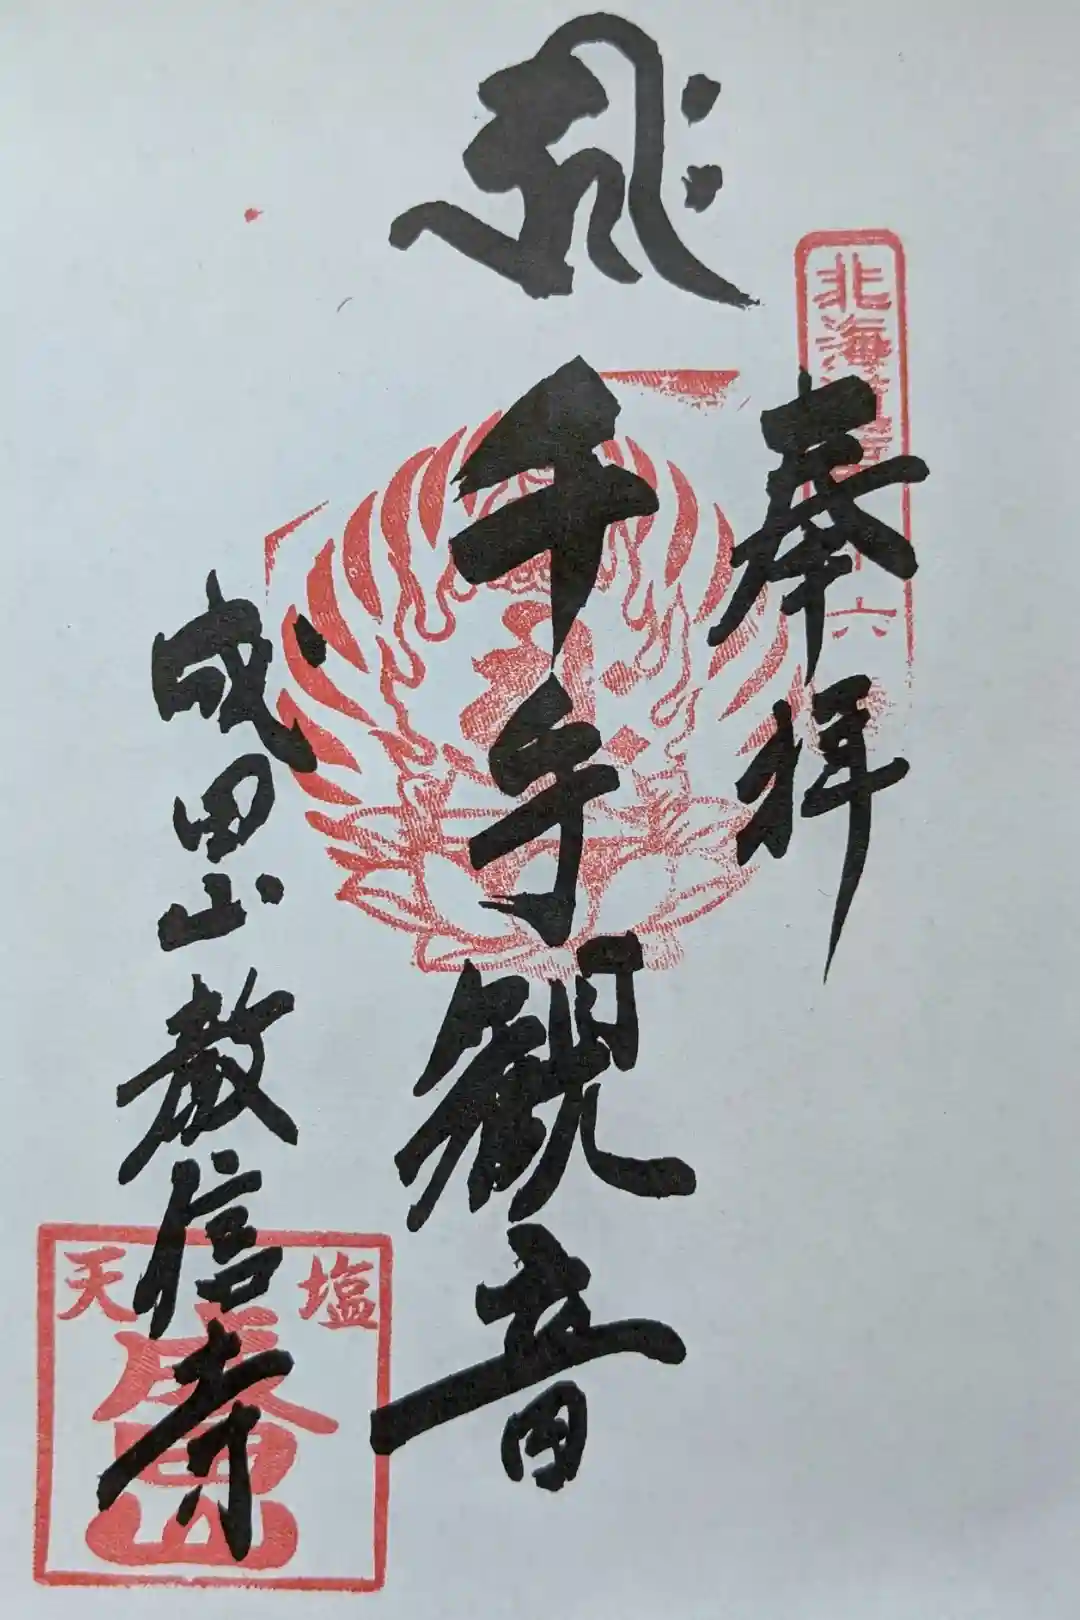 奉拝
千手観音
成田山教信寺
北海
六
塩
天
成田山